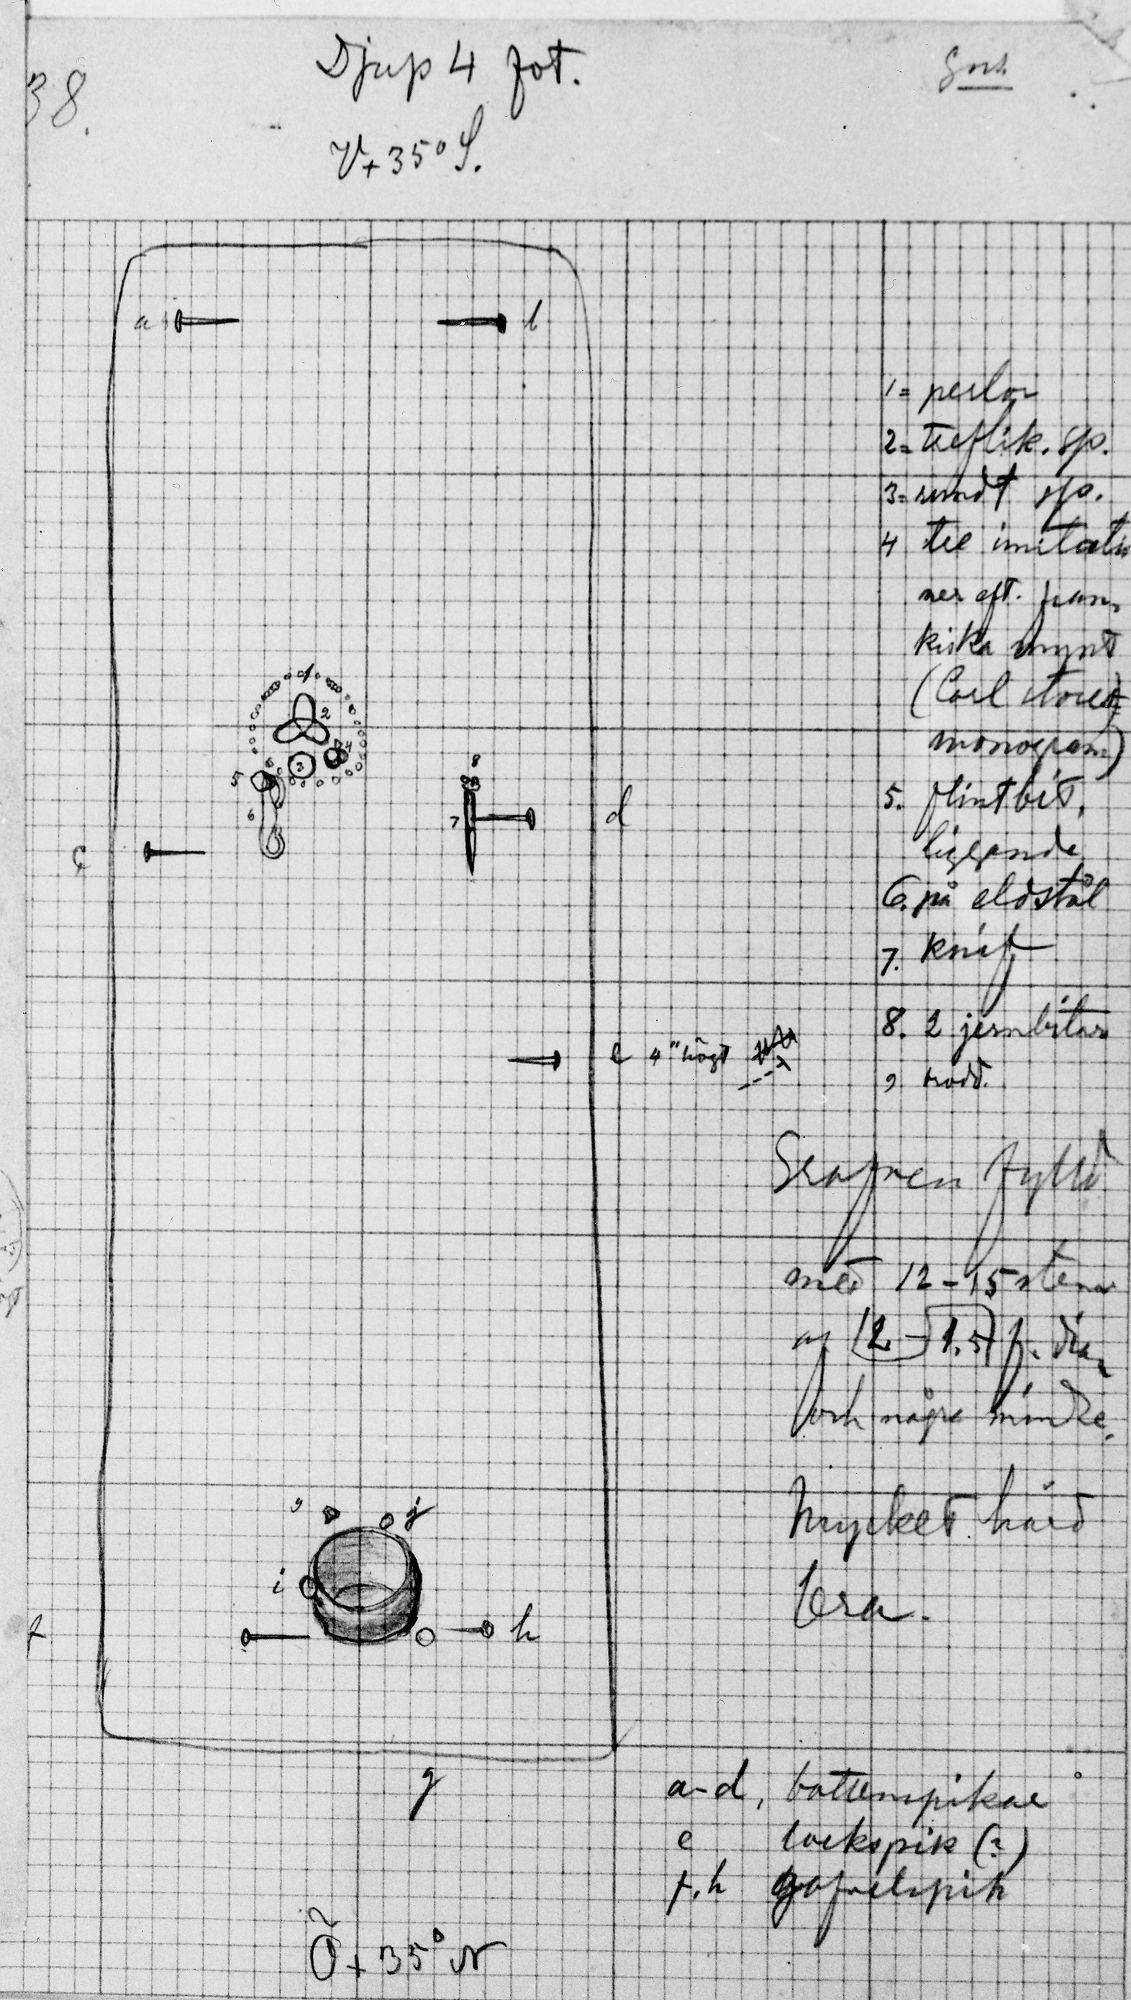 38.
Djup 4 fot.
V+35° S.
a
b
1= perlor
2= treflik. sp.
3= rundt sp.
4 tre imitatio
ner eft. fran,
kiska mynt
(Carl stores
monogram)
5. flintbit,
liggande
6. på eldstål
7. knif
8. 2 jernbitar
9 tand.
1
2
3
4
5
6
7
8
c
d
e 4" högt
Grafven fylld
med 12-15 stenar
af 2-1.5 f. dia,
och några mindre.
Mycket hård
lera.
9
j
i
f
h
g
a-d, bottenspikar
e lockspik (?)
f.h gafvelspik
Ö+35° N